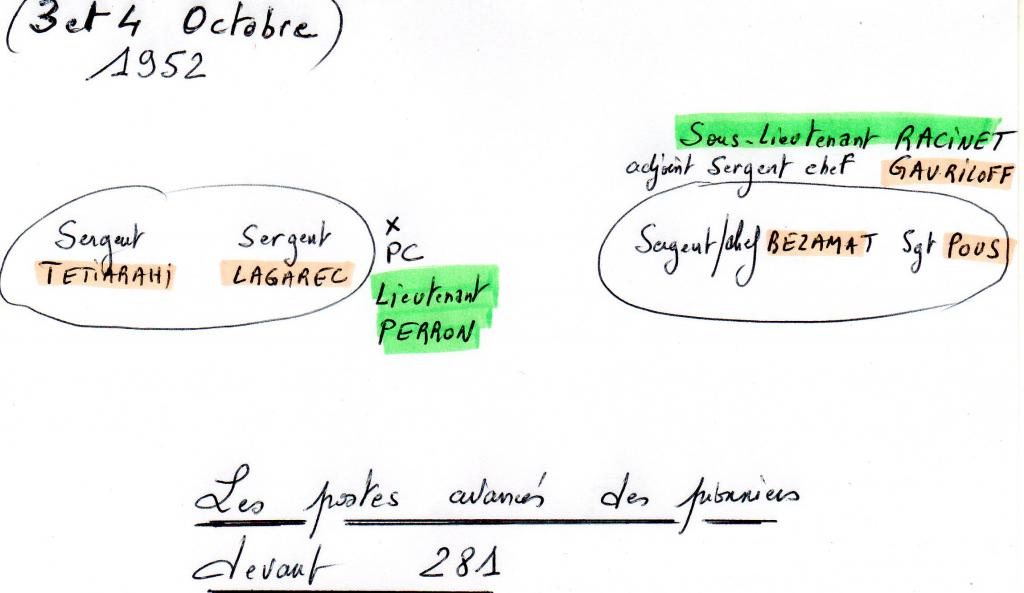 (3 et 4 Octobre)
1952
Sous-Lieutenant RACINET
adjoint Sergent chef GAVRILOFF
Sergent Sergent
TETIARAHI LAGAREC
X
PC
Lieutenant
PERRON
Sergent/chef BEZAMAT Sgt POUS
Les postes avancés des pionniers
devant 281